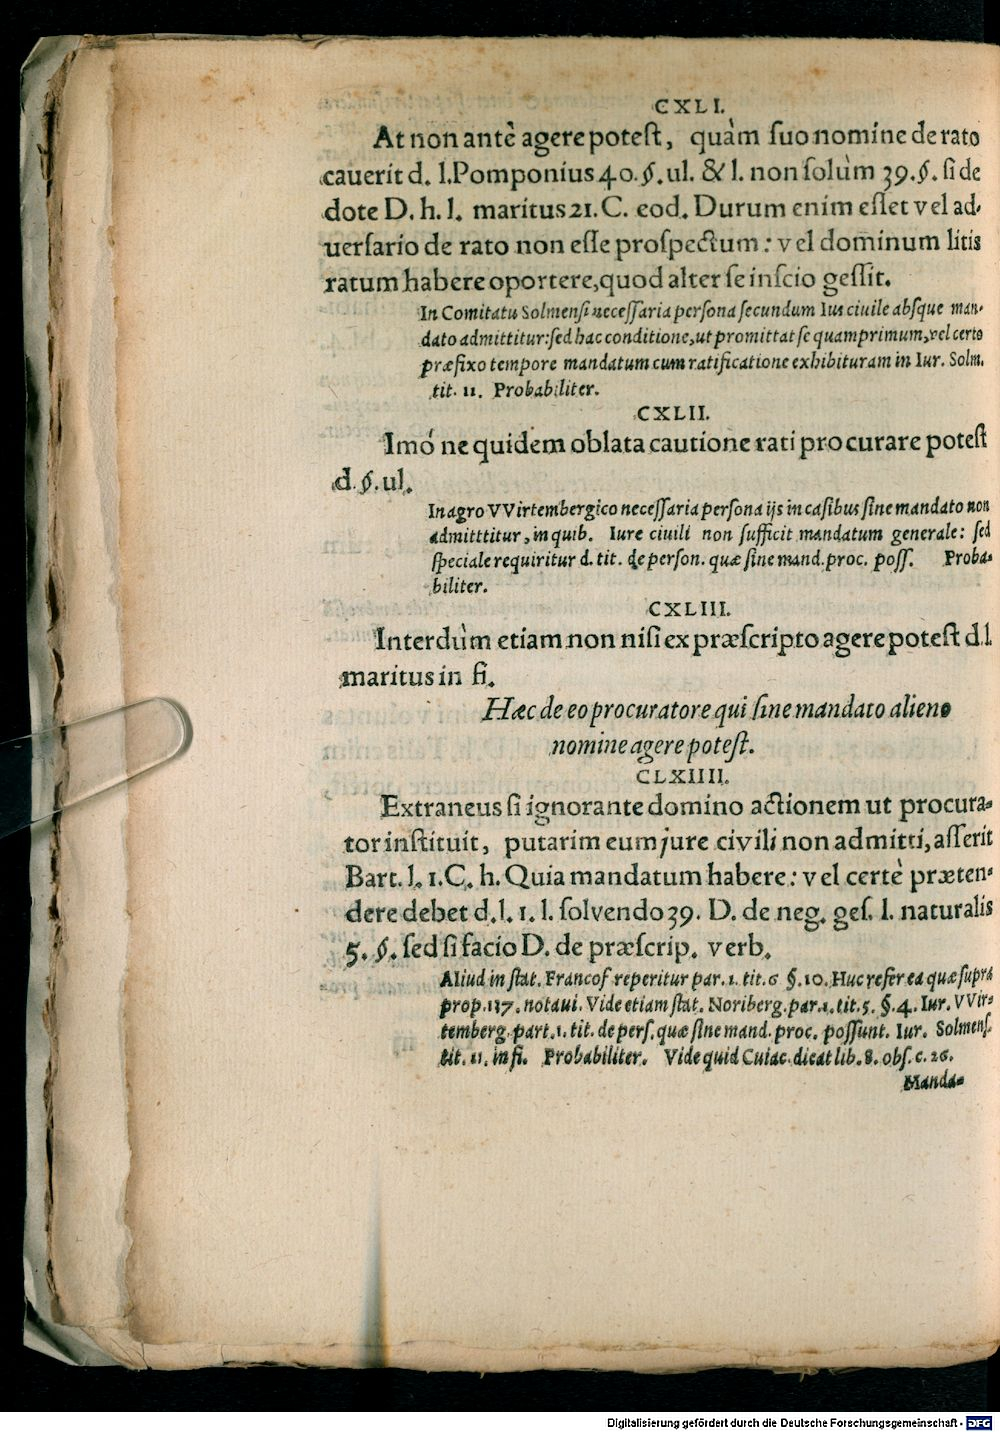 CXLI.
At non antè agere potest, quàm suo nomine de rato
cauerit d. l. Pomponius 40. §. ul. & l. non solùm 39. §. si de
dote D. h. l. maritus 21. C. eod. Durum enim esset vel ad-
uersario de rato non esse prospectum: vel dominum litis
ratum habere oportere, quod alter se inscio gessit.
In Comitatu Solmensi necessaria persona secundum Ius ciuile absque man-
dato admittitur: sed hac conditione, ut promittat se quamprimum, vel certo
præfixo tempore mandatum cum ratificatione exhibituram in Iur. Solm.
tit. 11. Probabiliter.
CXLII.
Imò ne quidem oblata cautione rati procurare potest
d. §. ul.
In agro VVirtembergico necessaria persona ijs in casibus sine mandato non
admitttitur, in quib. Iure ciuili non sufficit mandatum generale: sed
speciale requiritur d. tit. de person. quæ sine mand. proc. poss. Proba-
biliter.
CXLIII.
Interdùm etiam non nisi ex præscripto agere potest d. l.
maritus in fi.
Hæc de eo procuratore qui sine mandato alieno
nomine agere potest.
CLXIIII.
Extraneus si ignorante domino actionem ut procura-
tor instituit, putarim eum jure civili non admitti, asserit
Bart. l. 1. C. h. Quia mandatum habere: vel certè præten-
dere debet d. l. 1. l. solvendo 39. D. de neg. ges. l. naturalis
5. §. sed si facio D. de præscrip. verb.
Aliud in stat. Francof reperitur par. 1. tit. 6 §. 10. Huc refer ea quæ suprà
prop. 117. notaui. Vide etiam stat. Noriberg. par. 1. tit. 5. §. 4. Iur. VVir-
temberg. part. 1. tit. de pers. quæ sine mand. proc. possunt. Iur. Solmens.
tit. 11. in fi. Probabiliter. Vide quid Cuiac. dicat lib. 8. obs. c. 26.
Manda-
Digitalisierung gefördert durch die Deutsche Forschungsgemeinschaft - DFG